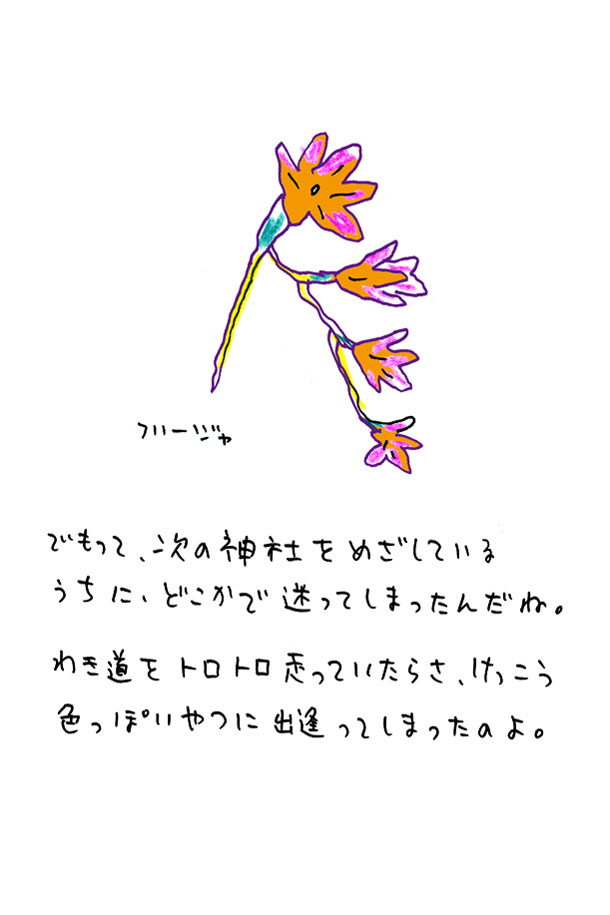 フリージャ
でもって、次の神社をめざしている
うちに、どこかで迷ってしまったんだね。
わき道をトロトロ走っていたらさ、けっこう
色っぽいやつに出逢ってしまったのよ。